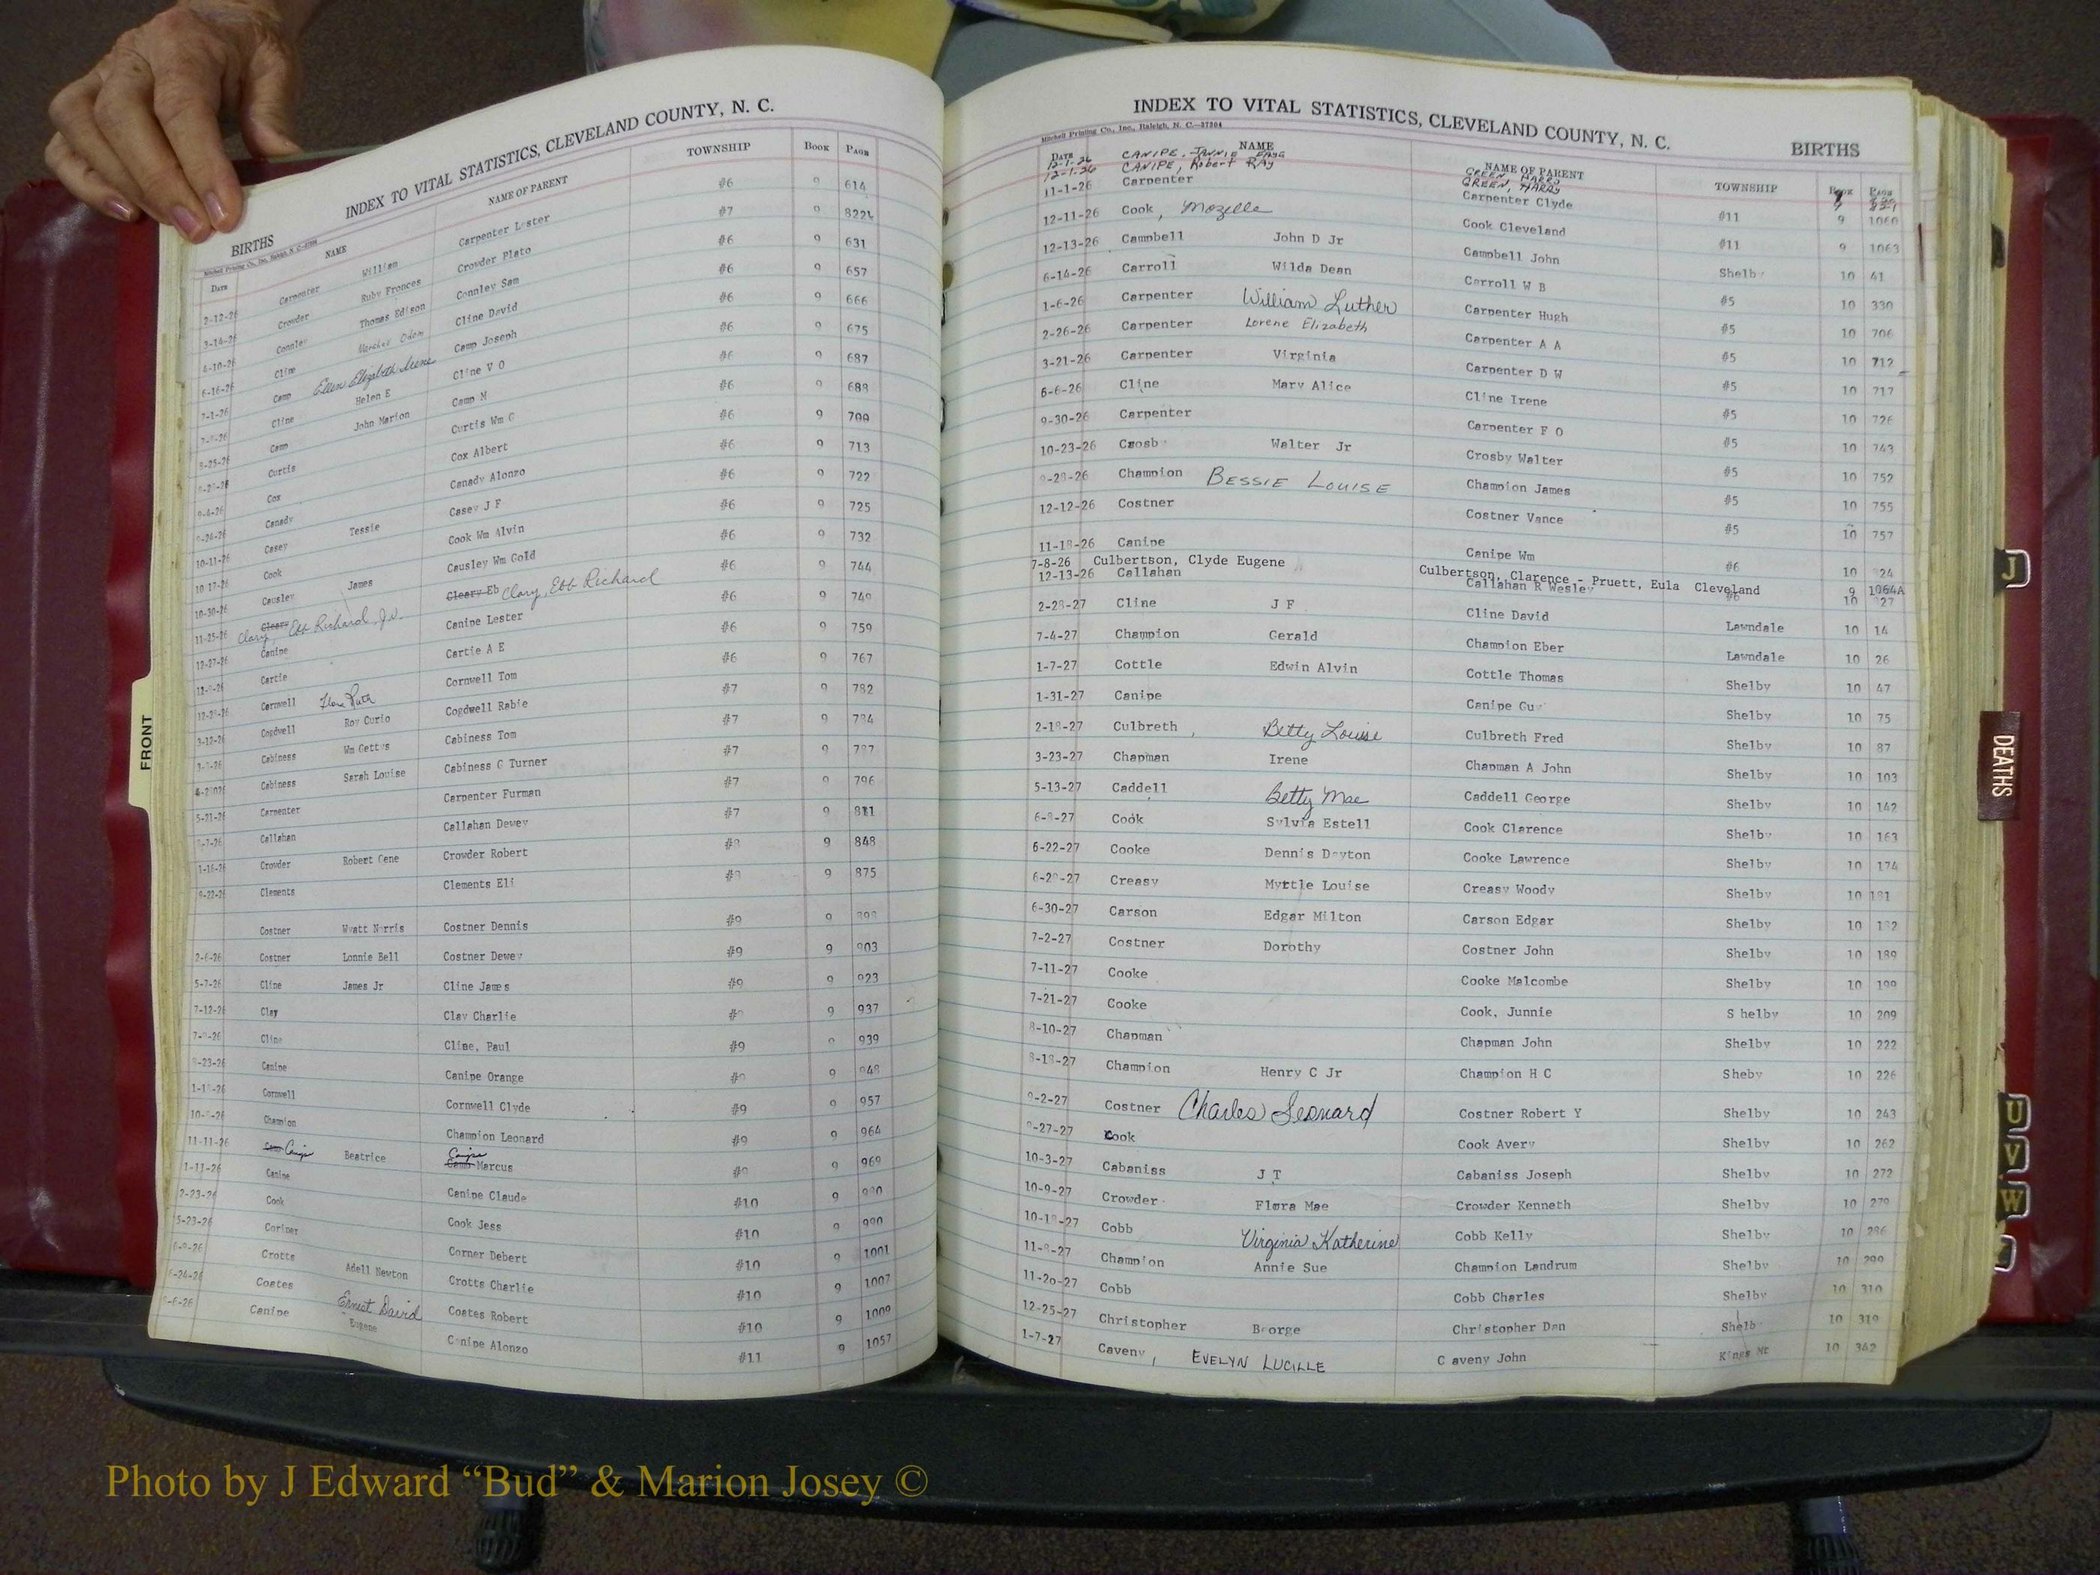 INDEX TO VITAL STATISTICS, CLEVELAND COUNTY, N. C.
BIRTHS
DATE NAME NAME OF PARENT TOWNSHIP BOOK PAGE
2-12-26 Carpenter William Carpenter Lester #6 9 614
3-14-26 Crowder Ruby Frances Crowder Plato #7 9
4-10-26 Connley Thomas Edison Connley Sam #6 9 631
6-16-26 Cline Cline David #6 9 657
7-1-26 Camp Ellen Elizabeth Irene Camp Joseph #6 9 666
Cline Helen E Cline V O #6 9 675
8-25-26 Camp John Marion Camp M #6 9 687
Curtis Curtis Wm G #6 9 688
9-4-26 Cox Cox Albert #6 9 700
Canady Canady Alonzo #6 9 713
10-11-26 Casey Tessie Casey J F #6 9 722
10-17-26 Cook Cook Wm Alvin #6 9 725
10-30-26 Causley James Causley Wm Gold #6 9 732
11-25-26 Cleary Clary, Ebb Richard Jr. Cleary Eb Clary, Ebb Richard #6 9 744
12-27-26 Canipe Canipe Lester #6 9 749
Cartie Cartie A E #6 9 759
Cornwell Flora Ruth Cornwell Tom #6 9 767
3-12-26 Cogdwell Roy Curio Cogdwell Rabie #7 9 782
Cabiness Wm Gettys Cabiness Tom #7 9 784
Cabiness Sarah Louise Cabiness G Turner #7 9 787
5-21-26 Carpenter Carpenter Furman #7 9 796
Callahan Callahan Dewey #7 9 811
1-16-26 Crowder Robert Gene Crowder Robert 9 848
9-22-26 Clements Clements Eli 9 875
Costner Wyatt Norris Costner Dennis #9 9
2-6-26 Costner Lonnie Bell Costner Dewey #9 9 903
5-7-26 Cline James Jr Cline James #9 9 923
7-12-26 Clay Clay Charlie #9 9 937
Cline Cline, Paul #9 9 939
Canipe Canipe Orange #9 9 948
Cornwell Cornwell Clyde #9 9 957
Champion Champion Leonard #9 9 964
11-11-26 Canipe Beatrice Canipe Marcus #9 9 969
1-11-26 Canipe Canipe Claude #10 9
2-23-26 Cook Cook Jess #10 9 990
5-23-26 Corner Corner Debert #10 9 1001
Crotts Adell Newton Crotts Charlie #10 9 1007
Coates Ernest David Coates Robert #10 9 1009
Canipe Eugene Canipe Alonzo #11 9 1057
FRONT
INDEX TO VITAL STATISTICS, CLEVELAND COUNTY, N. C.
BIRTHS
Mitchell Printing Co., Inc., Raleigh, N. C.—37804
DATE NAME NAME OF PARENT TOWNSHIP BOOK PAGE
12-1-26 CANIPE, GREEN, HARRY
12-1-26 CANIPE, Robert RAY GREEN, HARRY
11-1-26 Carpenter Carpenter Clyde #11 9 1060
12-11-26 Cook, Mozelle Cook Cleveland #11 9 1063
12-13-26 Campbell John D Jr Campbell John Shelby 10 41
6-14-26 Carroll Wilda Dean Carroll W B #5 10 330
1-6-26 Carpenter William Luther Carpenter Hugh #5 10 706
2-26-26 Carpenter Lorene Elizabeth Carpenter A A #5 10 712
3-21-26 Carpenter Virginia Carpenter D W #5 10 717
6-6-26 Cline Mary Alice Cline Irene #5 10 726
9-30-26 Carpenter Carpenter F O #5 10 743
10-23-26 Crosby Walter Jr Crosby Walter #5 10 752
Champion BESSIE LOUISE Champion James #5 10 755
12-12-26 Costner Costner Vance #5 10 757
11-18-26 Canipe Canipe Wm #6 10
7-8-26 Culbertson, Clyde Eugene Culbertson, Clarence - Pruett, Eula Cleveland 9 1064A
12-13-26 Callahan Callahan R Wesley #6 10
2-28-27 Cline J F Cline David Lawndale 10 14
7-4-27 Champion Gerald Champion Eber Lawndale 10 26
1-7-27 Cottle Edwin Alvin Cottle Thomas Shelby 10 47
1-31-27 Canipe Canipe Guy Shelby 10 75
2-18-27 Culbreth, Betty Louise Culbreth Fred Shelby 10 87
3-23-27 Chapman Irene Chapman A John Shelby 10 103
5-13-27 Caddell Betty Mae Caddell George Shelby 10 142
6-8-27 Cook Sylvia Estell Cook Clarence Shelby 10 163
6-22-27 Cooke Dennis Dayton Cooke Lawrence Shelby 10 174
6-29-27 Creasy Myrtle Louise Creasy Woody Shelby 10 181
6-30-27 Carson Edgar Milton Carson Edgar Shelby 10 182
7-2-27 Costner Dorothy Costner John Shelby 10 189
7-11-27 Cooke Cooke Malcombe Shelby 10 199
7-21-27 Cooke Cook, Junnie S helby 10 209
8-10-27 Chapman Chapman John Shelby 10 222
8-18-27 Champion Henry C Jr Champion H C Sheby 10 226
9-2-27 Costner Charles Leonard Costner Robert Y Shelby 10 243
9-27-27 Cook Cook Avery Shelby 10 262
10-3-27 Cabaniss J T Cabaniss Joseph Shelby 10 272
10-9-27 Crowder Flora Mae Crowder Kenneth Shelby 10 279
10-18-27 Cobb Virginia Katherine Cobb Kelly Shelby 10 286
11-8-27 Champion Annie Sue Champion Landrum Shelby 10 299
11-20-27 Cobb Cobb Charles Shelby 10 310
12-25-27 Christopher Christopher Dan Shelby 10 319
1-7-27 Caveny, EVELYN LUCILLE C aveny John Kings Mt 10 342
J
DEATHS
U
V
W
Photo by J Edward “Bud” & Marion Josey ©